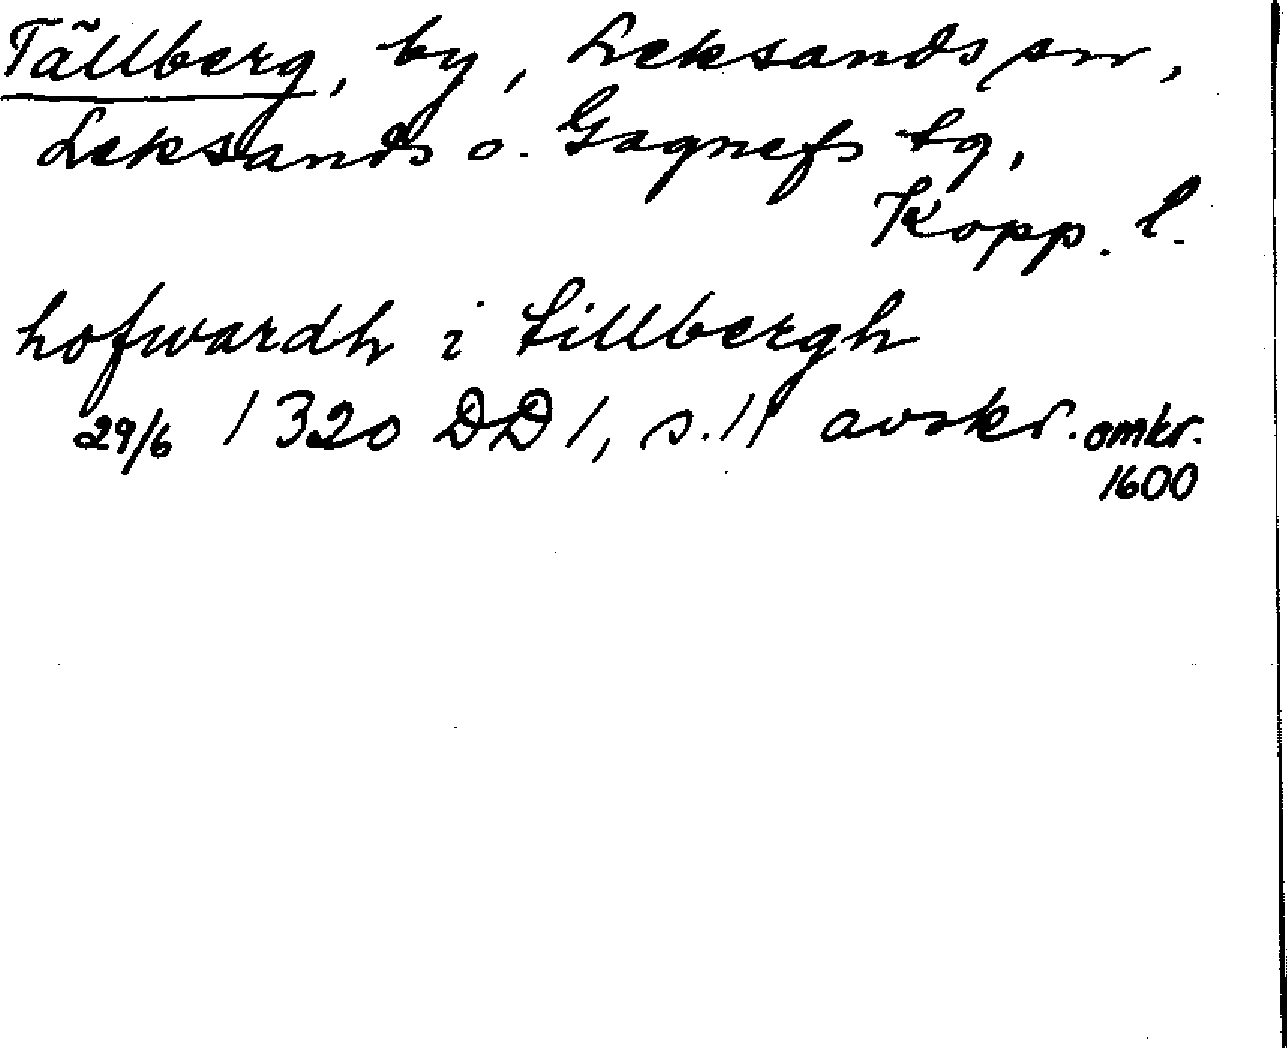 Tällberg, by, Leksands sn,
Leksands o. Gagnefs tg,
Kopp. l.
hofwardh i tillbergh
29/6 1320 DD 1, s. 11 avskr. omkr.
1600